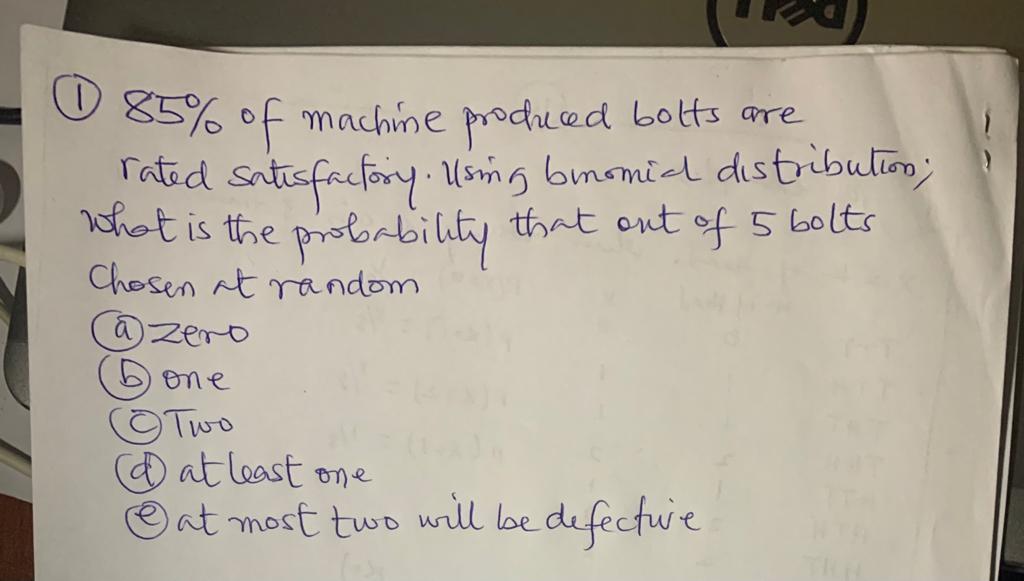 DELL
① 85% of machine produced bolts are
rated satisfactory. Using binomial distribution;
What is the probability that out of 5 bolts
Chosen at random
ⓐ zero
ⓑ one
ⓒ Two
ⓓ at least one
ⓔ at most two will be defective